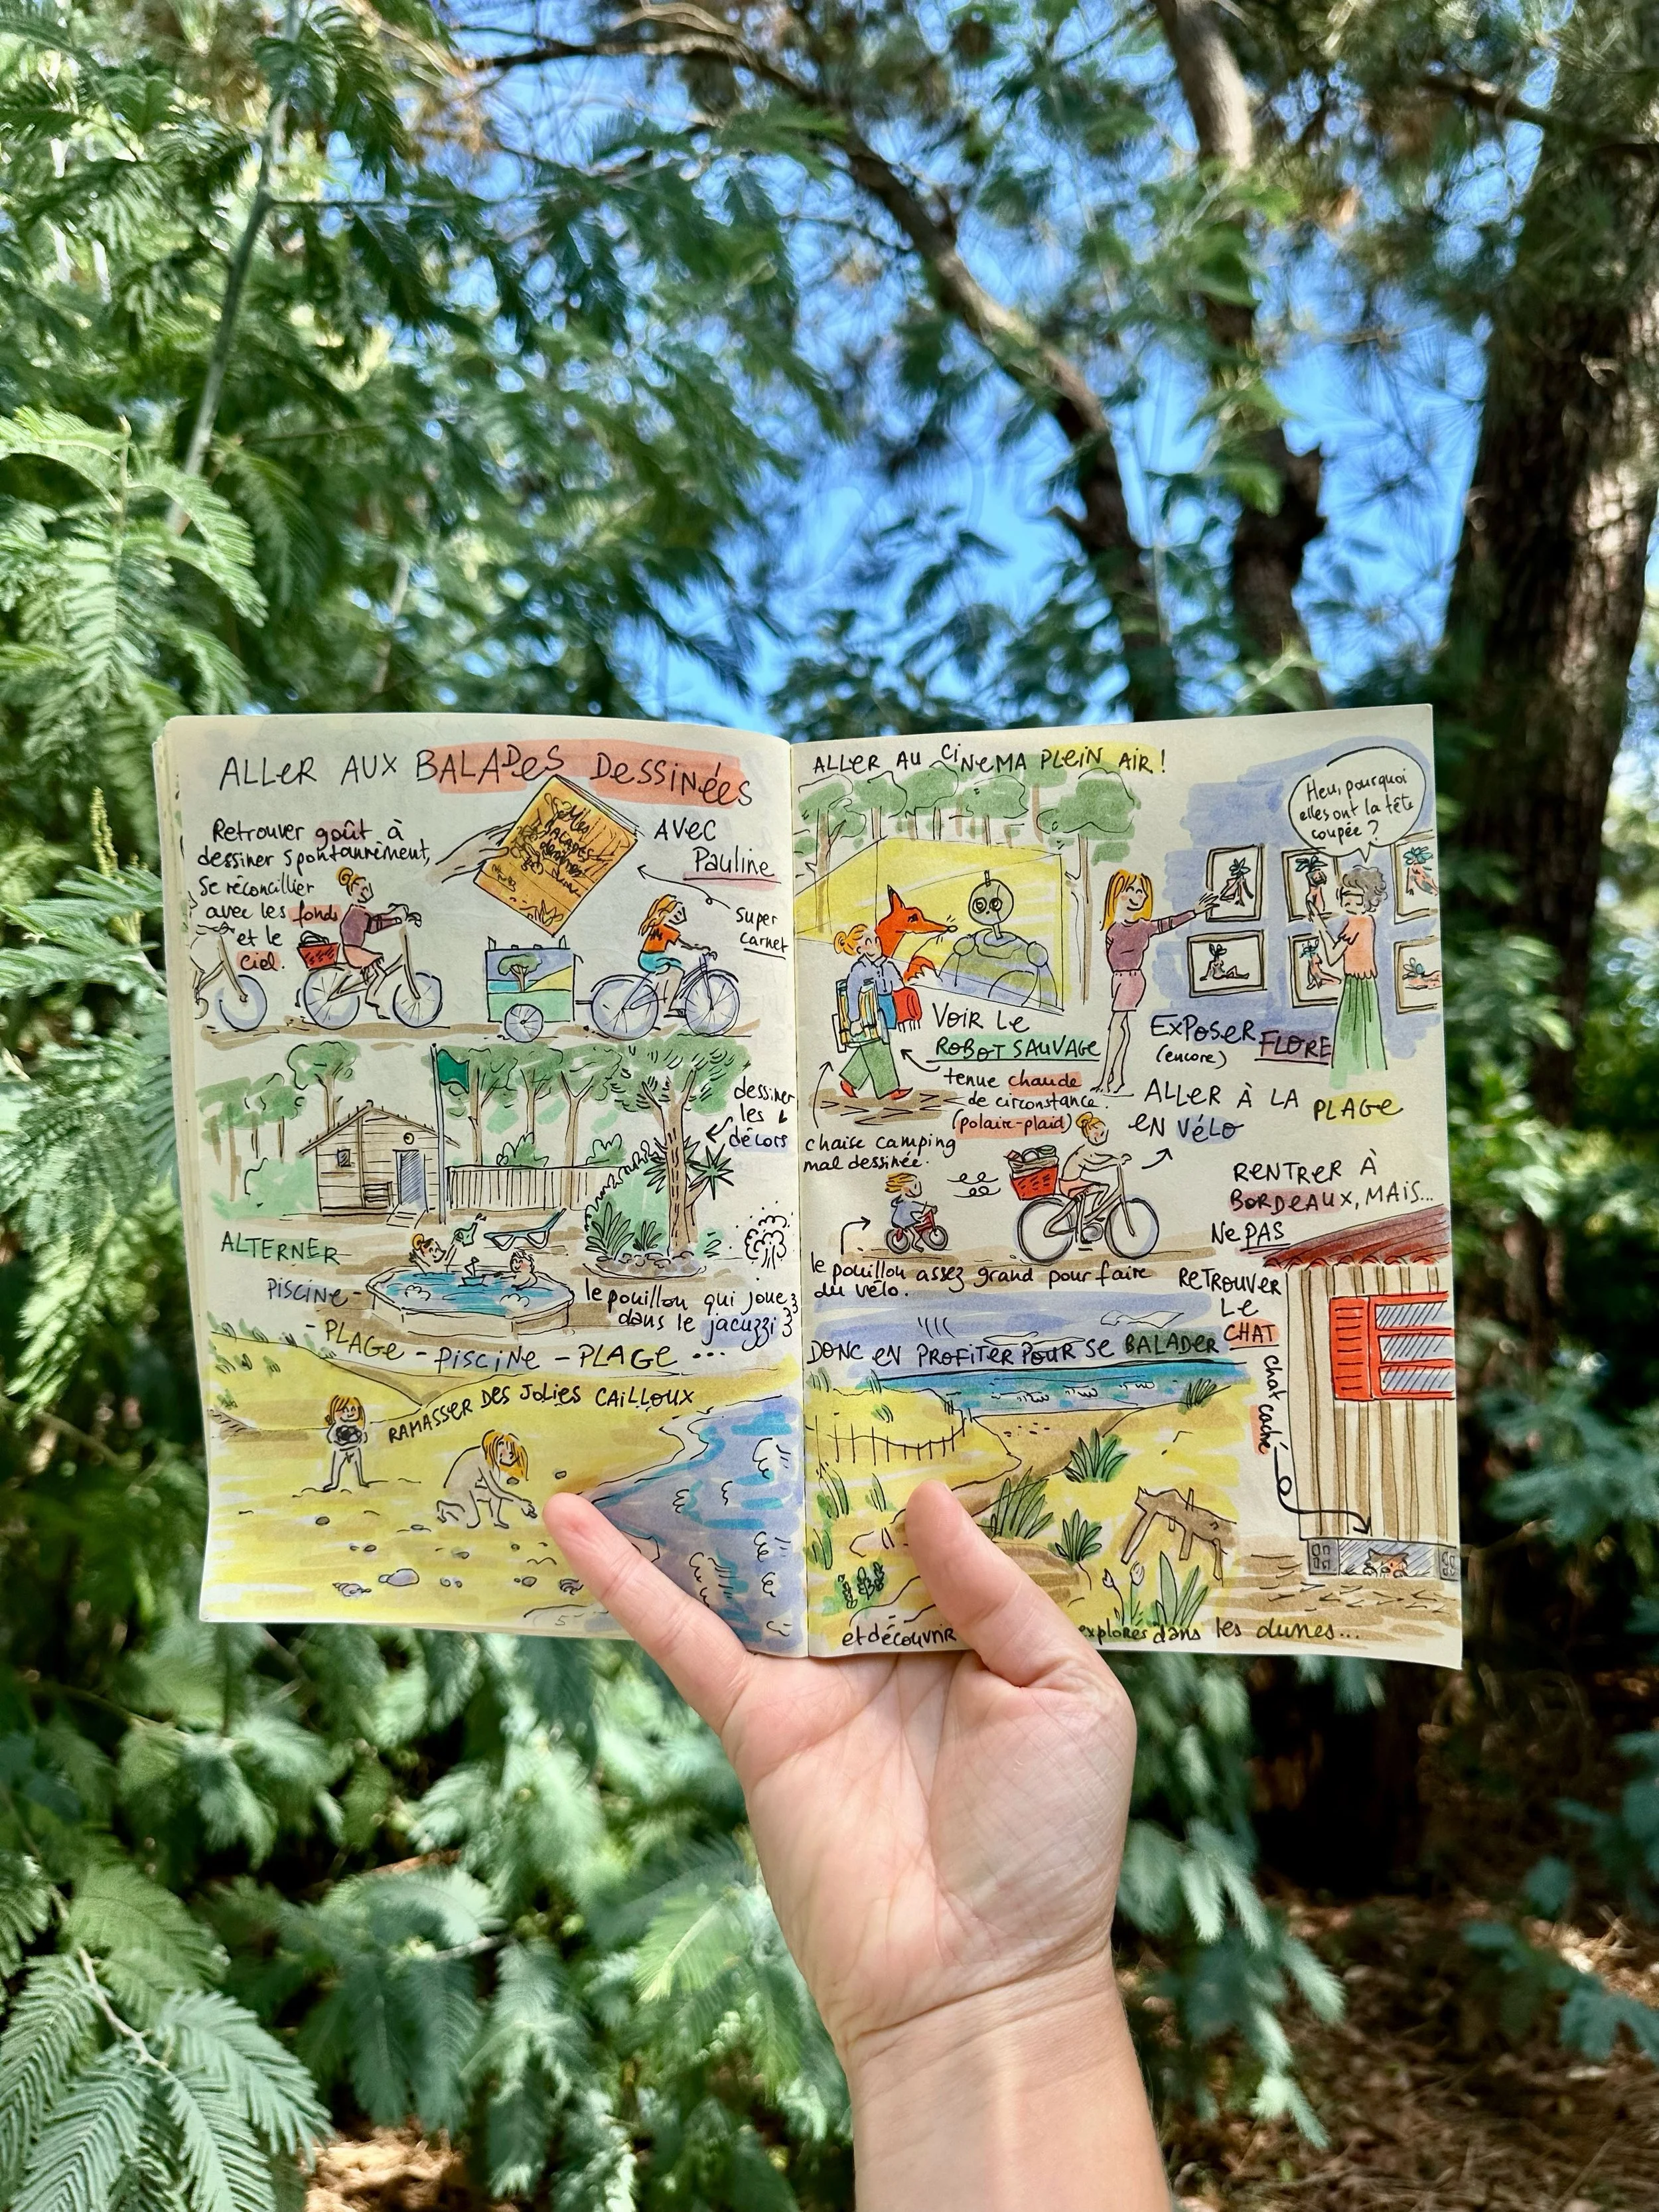 ALLER AUX BALADES DESSINÉES
Retrouver goût à
dessiner spontanément,
se réconcilier
avec les fonds
et le
ciel.
AVEC
Pauline
super
carnet
dessiner
les
décors
ALTERNER
PISCINE -
- PLAGE - PISCINE - PLAGE ...
le pouillon qui joue
dans le jacuzzi
RAMASSER DES JOLIES CAILLOUX
ALLER AU CINEMA PLEIN AIR !
VOIR LE
ROBOT SAUVAGE
tenue chaude
de circonstance.
(polaire-plaid)
chaise camping
mal dessinée.
Heu, pourquoi
elles ont la tête
coupée ?
EXPOSER FLORE
(encore)
ALLER À LA PLAGE
EN VÉLO
le pouillon assez grand pour faire
du vélo.
RENTRER À
BORDEAUX, MAIS...
NE PAS
RETROUVER
LE
CHAT
chat caché
DONC EN PROFITER POUR SE BALADER
et découvrir
explorés dans les dunes...